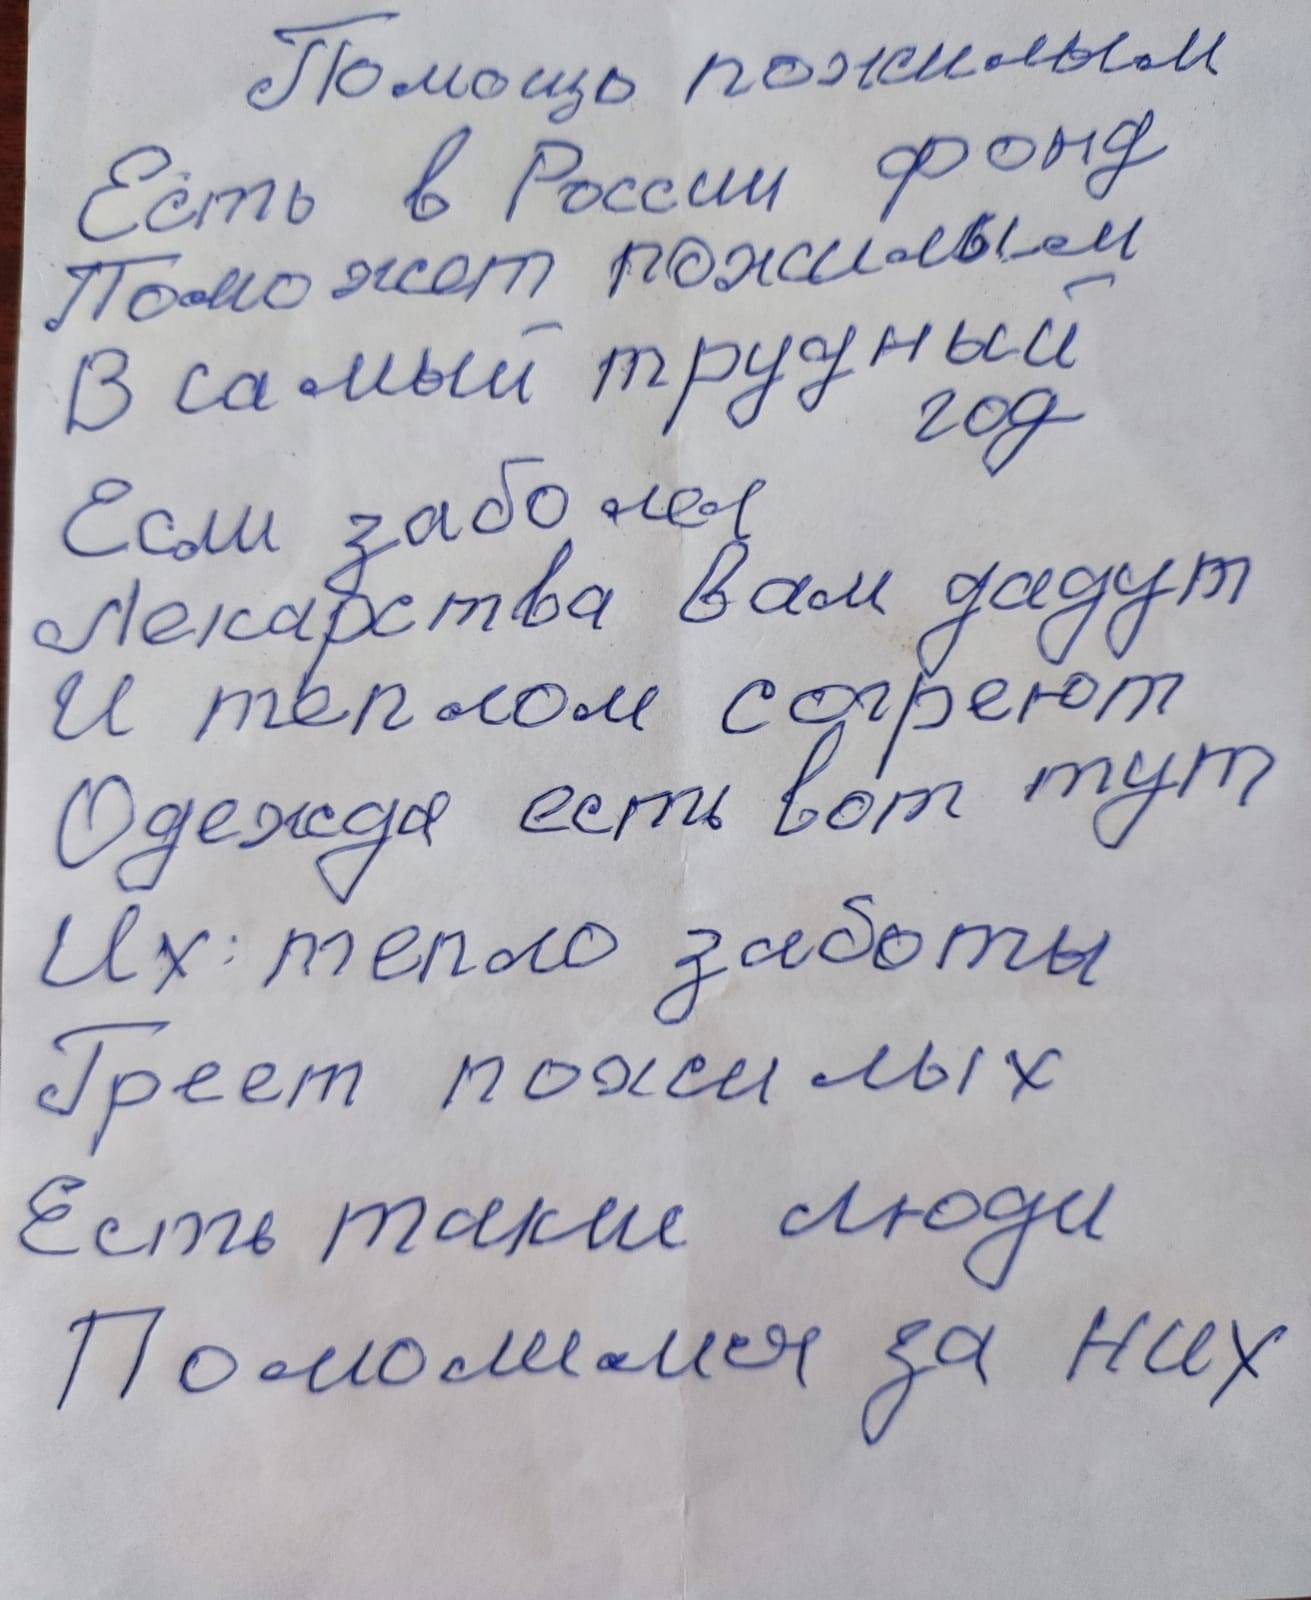 Помощь пожилым
Есть в России фонд
Поможет пожилым
В самый трудный
год
Если заболел
Лекарства вам дадут
И теплом согреют
Одежда есть вот тут
Их: тепло заботы
Греет пожилых
Есть такие люди
Помолимся за них